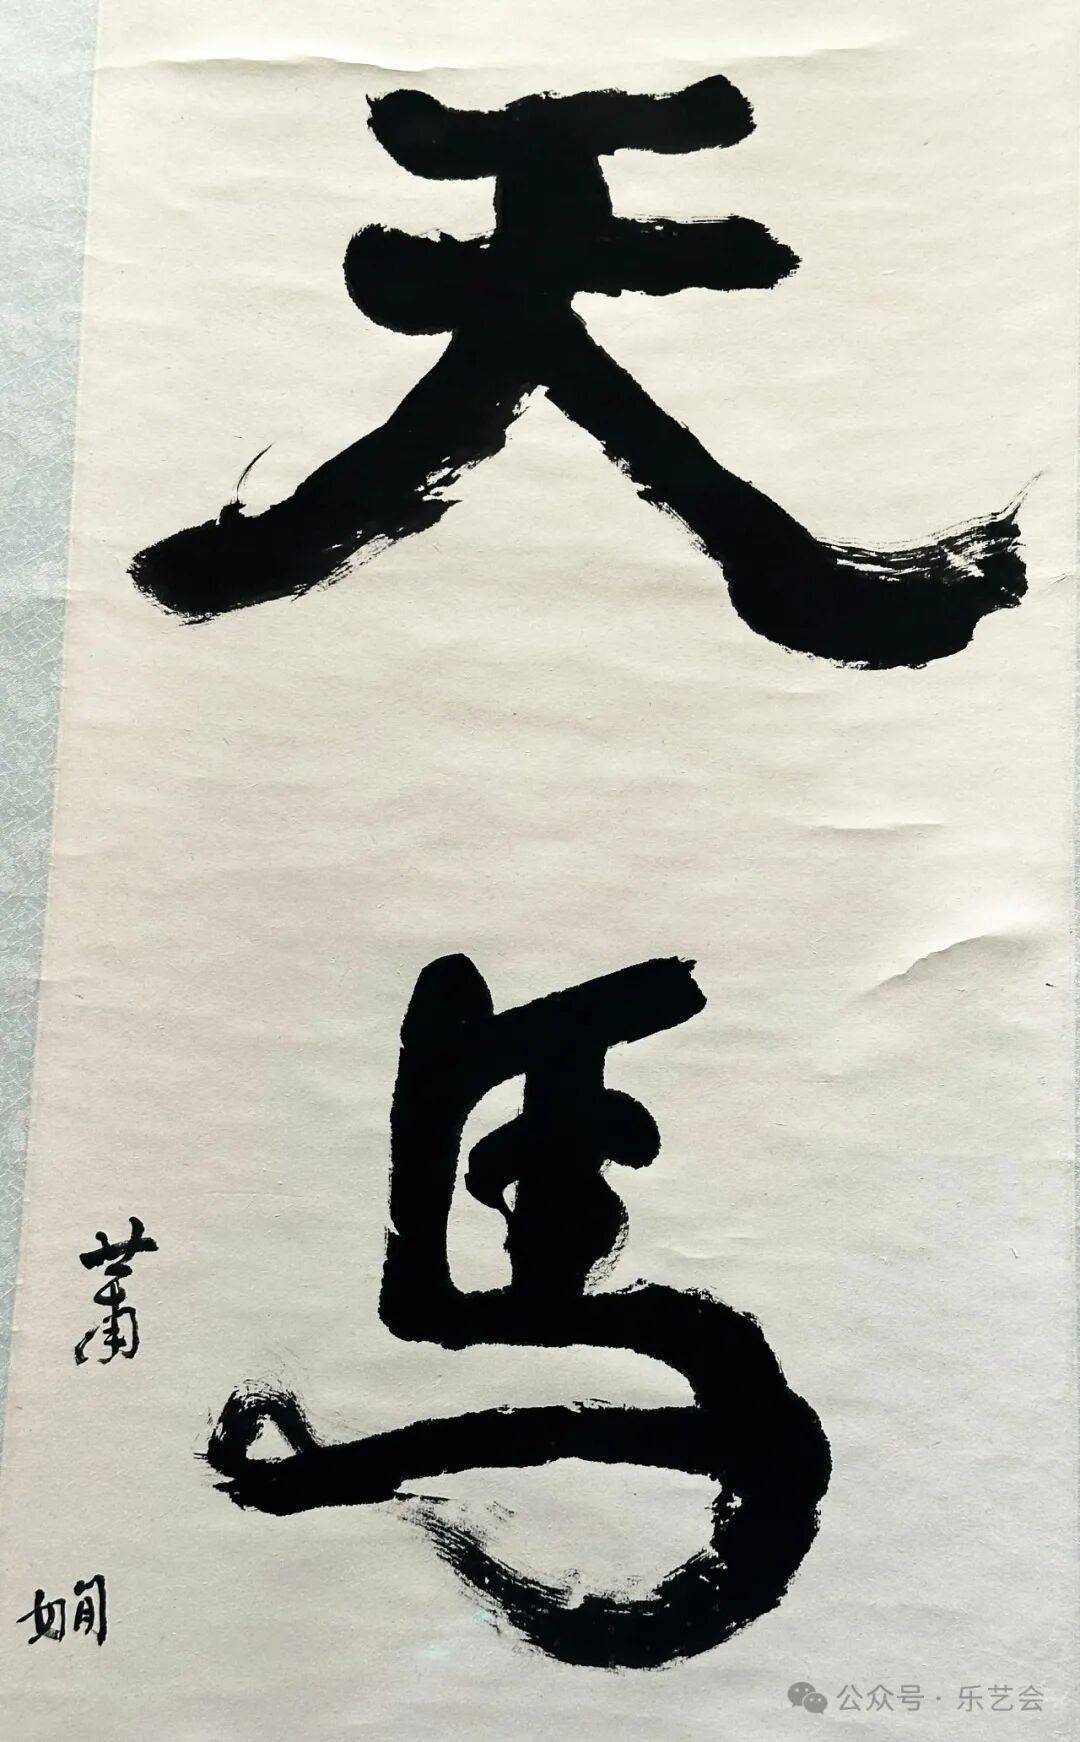 天马
萧娴
公众号·乐艺会